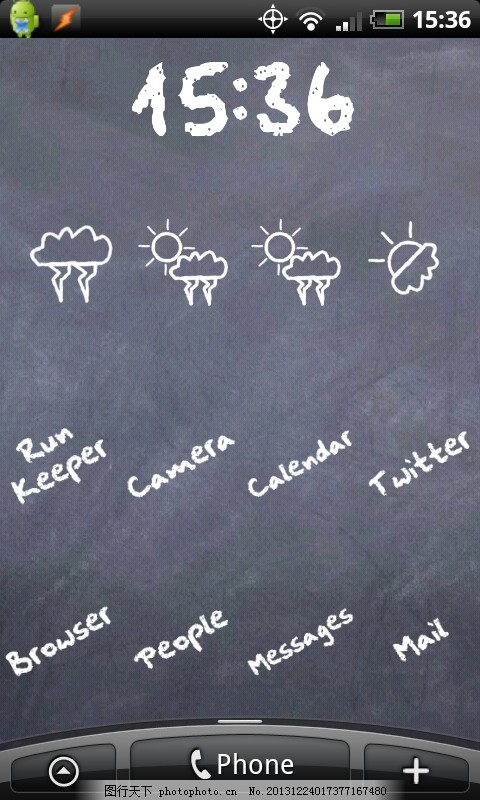 15:36
15:36
Run
Keeper
Camera
Calendar
Twitter
Browser
People
Messages
Mail
Phone
图行天下 photophoto.cn No.20131224017377167480